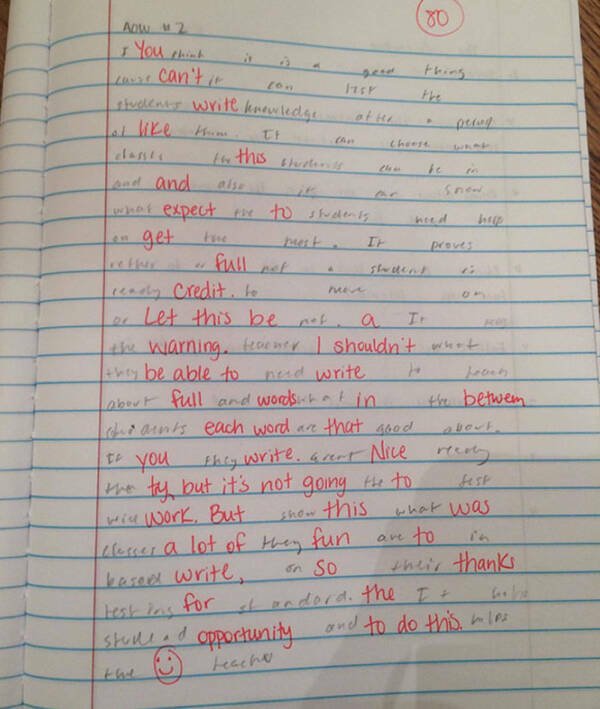 80
AOW #2
I You think it is a good thing
cause can't it can test the
students write knowledge after a period
of like them. It can choose what
classes the this students can be in
and and also it can show
what expect the to students need help
on get the most. It proves
rether it or full not a student is
ready credit. to move on
or Let this be not. a It
the warning. teacher I shouldn't what
they be able to need write to teach
about full and words what in the betwem
students each word are that good about.
If you they write. arent Nice ready
the try, but it's not going the to test
will work. But show this what was
classes a lot of they fun are to in
based write, on so their thanks
testing for standard. the It helps
student opportunity and to do this. helps
the teacher